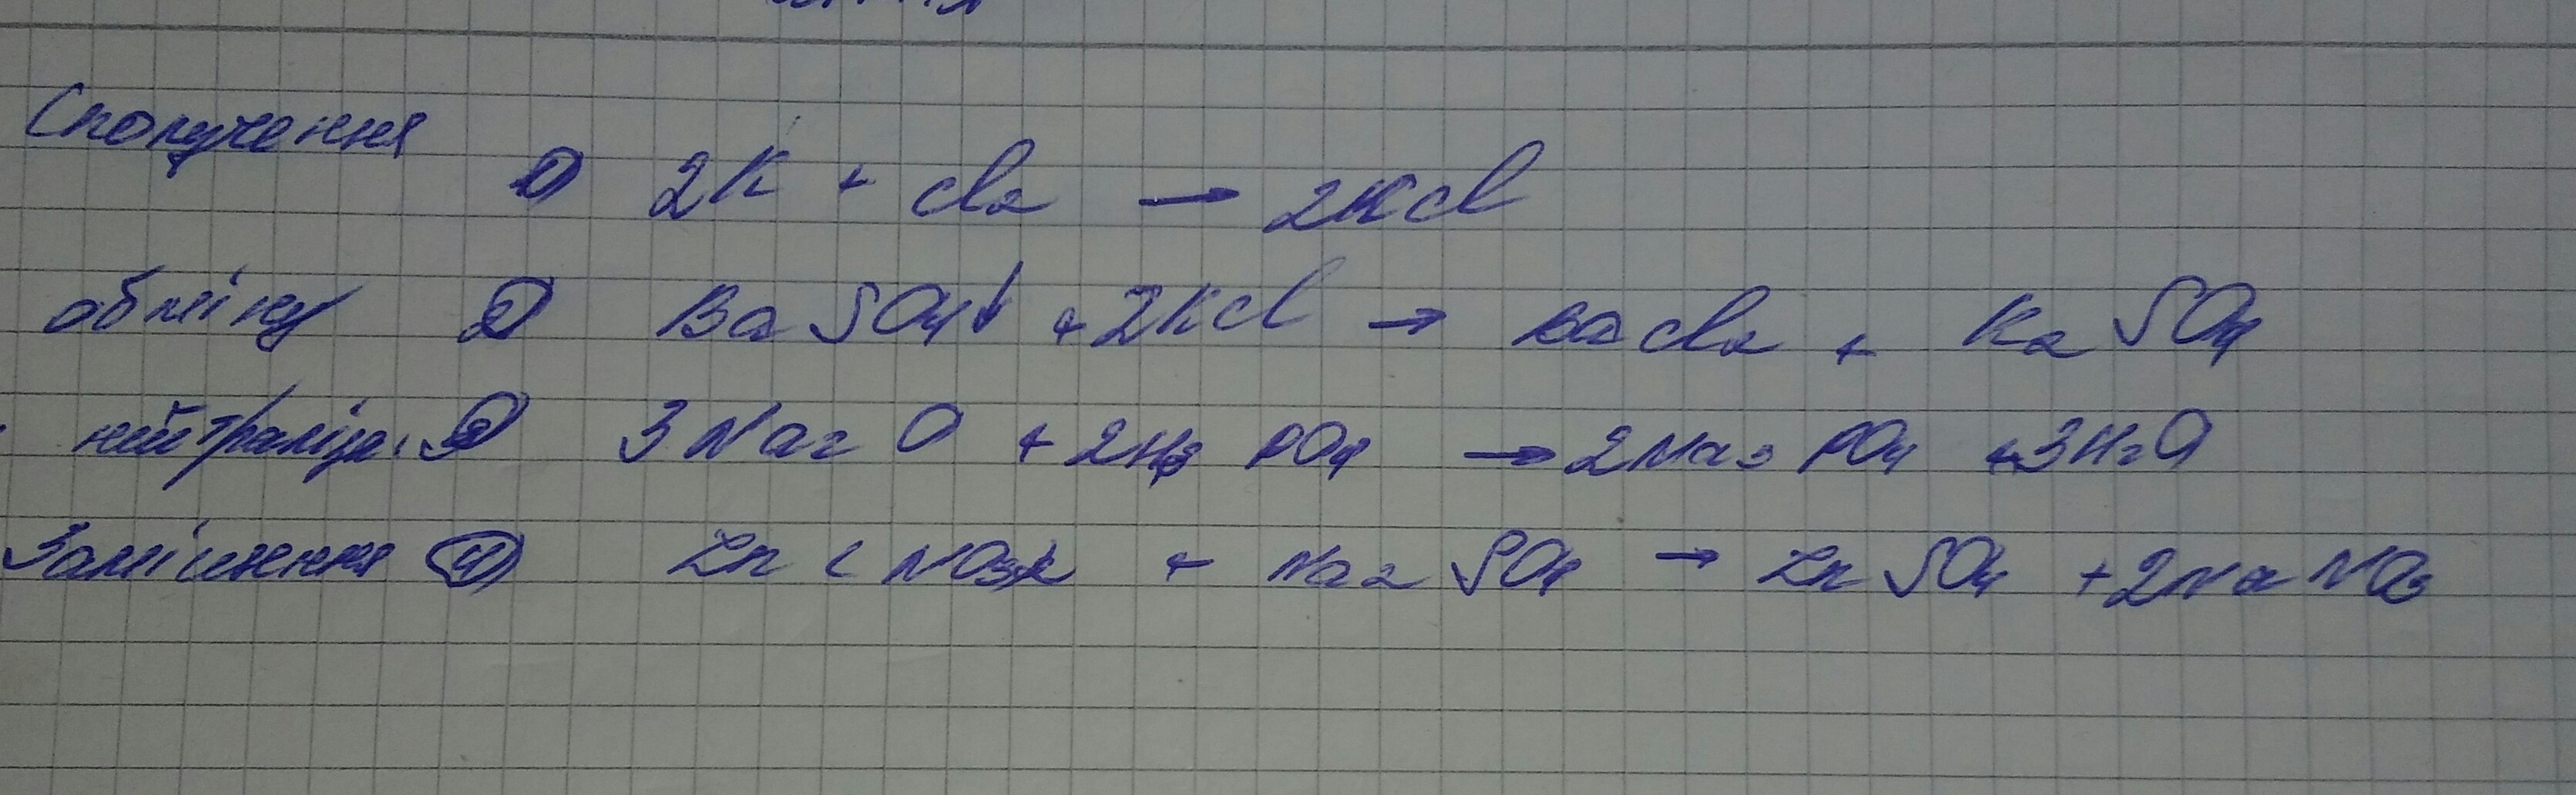 Сполучення 1) 2K + Cl₂ → 2KCl
обміну 2) BaSO₄↓ + 2KCl → BaCl₂ + K₂SO₄
нейтраліза. 3) 3Na₂O + 2H₃PO₄ → 2Na₃PO₄ + 3H₂O
Заміщення 4) Zn(NO₃)₂ + Na₂SO₄ → ZnSO₄ + 2NaNO₃